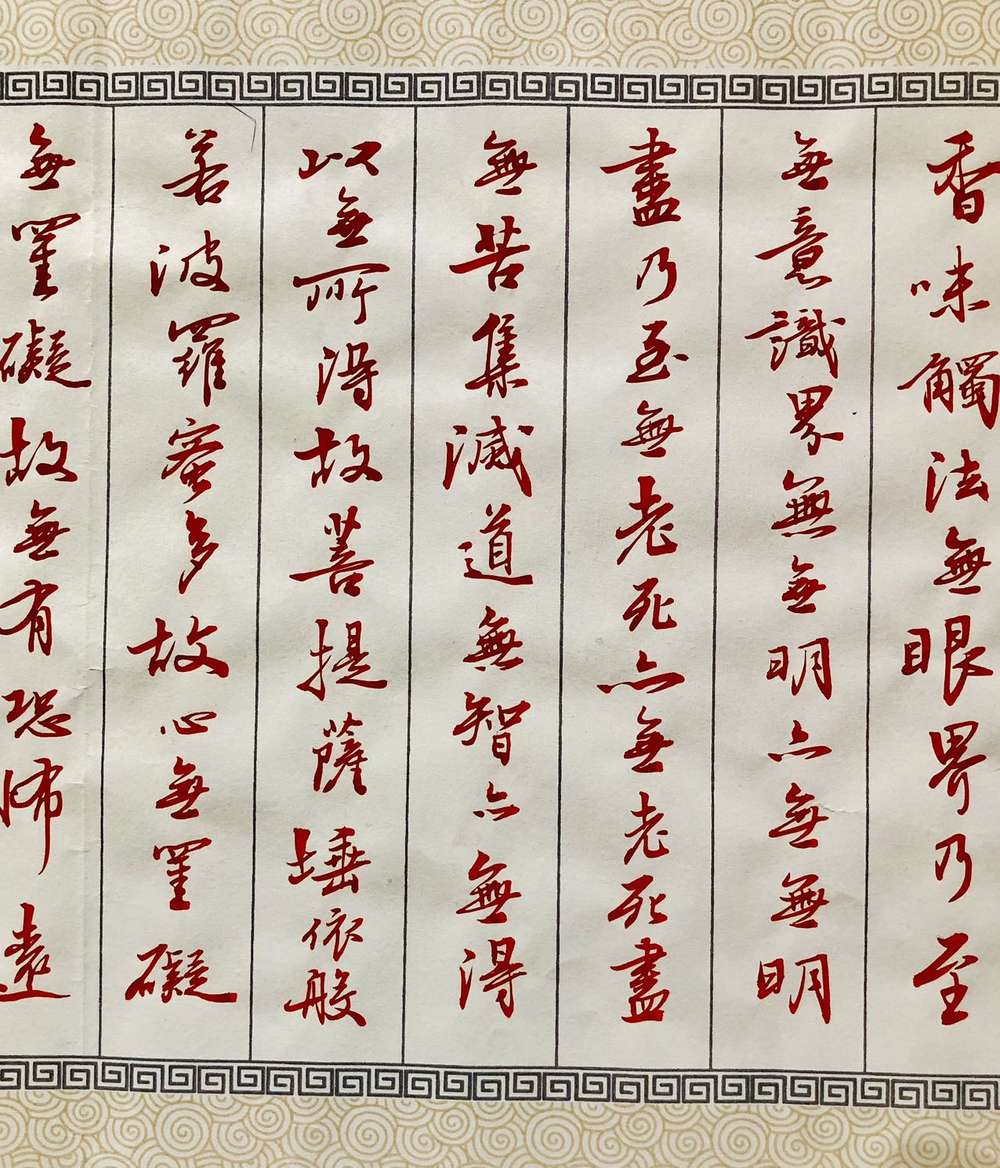 香味觸法無眼界乃至
無意識界無無明亦無無明
盡乃至無老死亦無老死盡
無苦集滅道無智亦無得
以無所得故菩提薩埵依般
若波羅蜜多故心無罣礙
無罣礙故無有恐怖遠